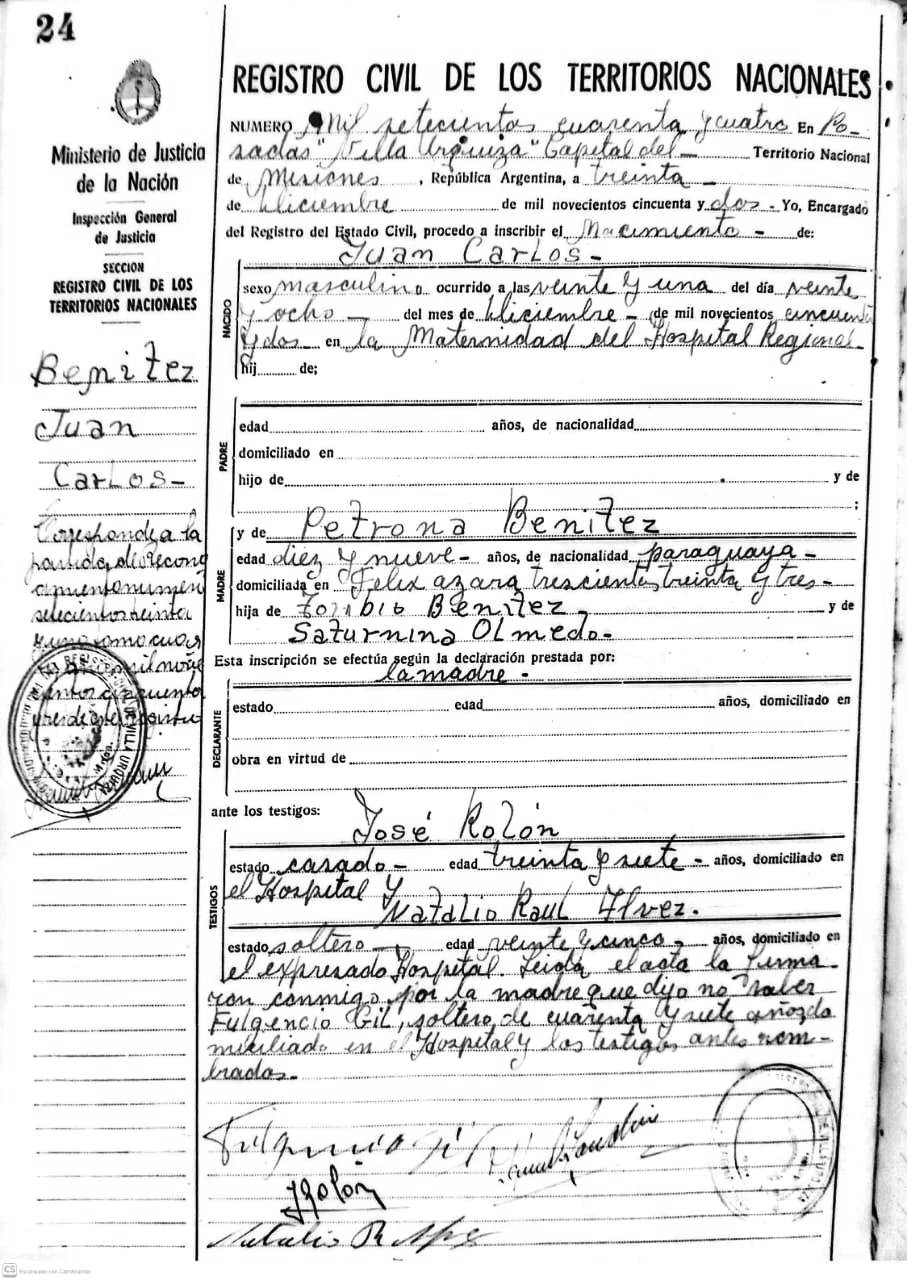 24
REGISTRO CIVIL DE LOS TERRITORIOS NACIONALES
Ministerio de Justicia
de la Nación
Inspección General
de Justicia
SECCION
REGISTRO CIVIL DE LOS
TERRITORIOS NACIONALES
Benitez
Juan
Carlos-
Corresponde a la
partida de recono
setecientos treinta
NUMERO Mil setecientos cuarenta y cuatro En Po-
sadas "Villa Urquiza" Capital del - Territorio Nacional
de Misiones , República Argentina, a treinta -
de diciembre de mil novecientos cincuenta y dos - Yo, Encargado
del Registro del Estado Civil, procedo a inscribir el Nacimiento - de:
Juan Carlos -
NACIDO
sexo masculino ocurrido a las veinte y una del día veinte
y ocho - del mes de diciembre - de mil novecientos cincuenta
y dos - en la Maternidad del Hospital Regional
hij de;
PADRE
edad años, de nacionalidad
domiciliado en
hijo de y de
;
MADRE
y de Petrona Benitez
edad diez y nueve - años, de nacionalidad paraguaya -
domiciliada en Felix azara trescientos treinta y tres -
hija de Toribio Benitez y de
Saturnina Olmedo -
Esta inscripción se efectúa según la declaración prestada por:
la madre -
DECLARANTE
estado edad años, domiciliado en
obra en virtud de
ante los testigos:
José Rolón
TESTIGOS
estado casado - edad treinta y siete - años, domiciliado en
el Hospital y
Natalio Raul Alvez.
estado soltero - edad veinte y cinco - años, domiciliado en
el expresado Hospital. Leida el acta la firma-
ron conmigo por la madre que dijo no saber
Fulgencio Gil, soltero, de cuarenta y siete años, do
miciliado en el Hospital y los testigos antes nom-
brados.-
Fulgencio Gil
JRolón
Natalio R.
CS Escaneado con CamScanner